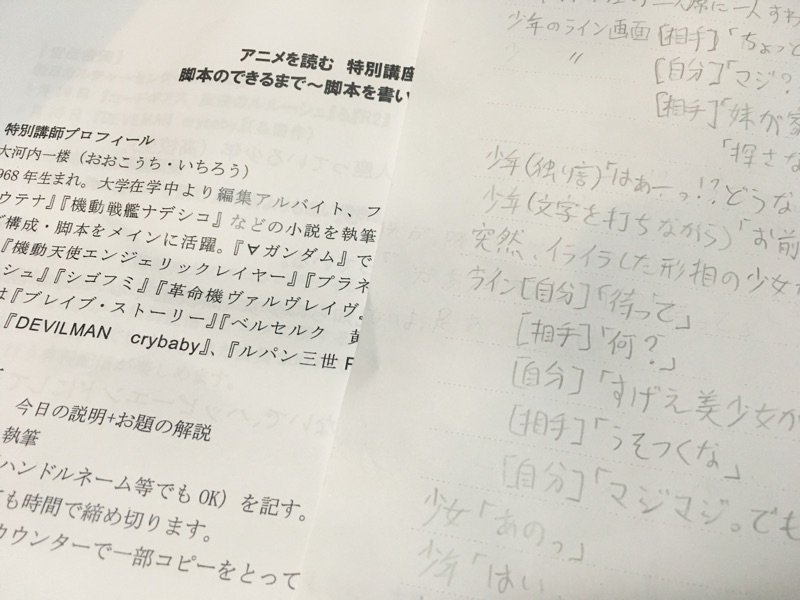 アニメを読む 特別講座
脚本のできるまで～脚本を書い
特別講師プロフィール
大河内一楼（おおこうち・いちろう）
968年生まれ。大学在学中より編集アルバイト、フ
ウテナ』『機動戦艦ナデシコ』などの小説を執筆
構成・脚本をメインに活躍。『∀ガンダム』で
『機動天使エンジェリックレイヤー』『プラネ
シュ』『シゴフミ』『革命機ヴァルヴレイヴ。
は『ブレイブ・ストーリー』『ベルセルク 黄
『DEVILMAN crybaby』、『ルパン三世 P
今日の説明+お題の解説
執筆
ハンドルネーム等でも OK）を記す。
ても時間で締め切ります。
カウンターで一部コピーをとって
席に一人すわ
少年のライン画面 [相手]「ちょっと
〃 [自分]「マジ?
[相手]「妹が家
「探さな
少年(独り言)「はぁーっ!?どうな
少年(文字を打ちながら)「お前
突然、イライラした形相の少女が
ライン[自分]「待って」
[相手]「何?」
[自分]「すげえ美少女が
[相手]「うそつくな」
[自分]「マジマジ。でも
少女「あのっ」
少年「はい